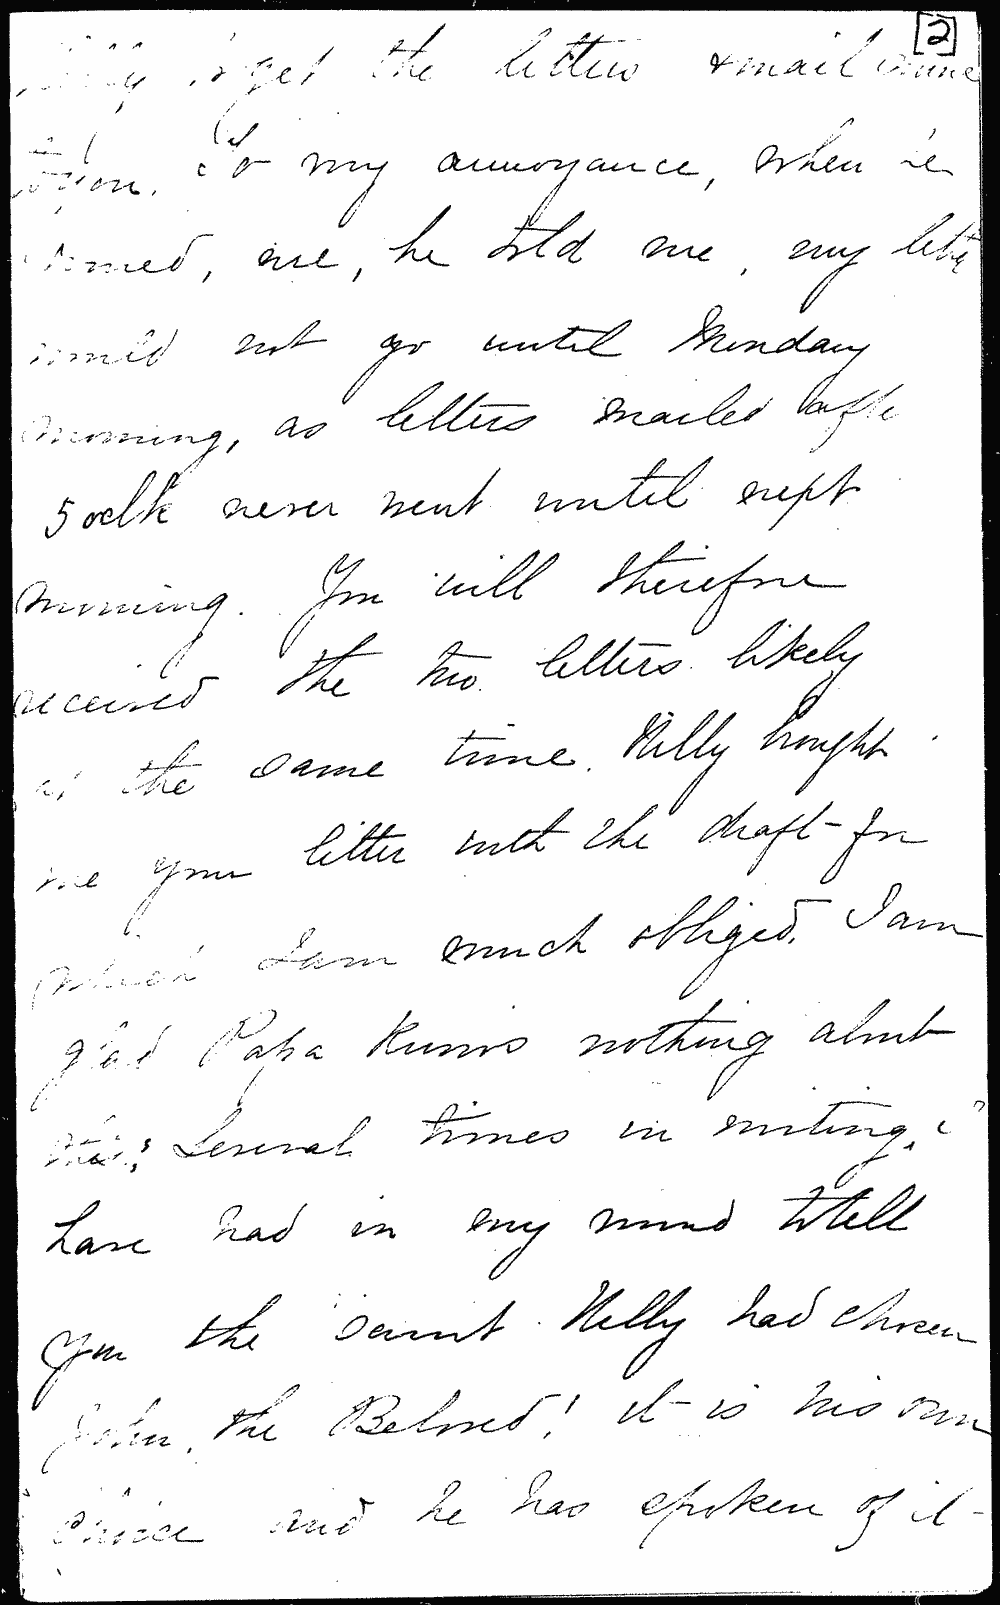 [2]
to get the letters & mail mine
to you. To my annoyance, when he
me, he told me, my letter
would not go until Monday
morning, as letters mailed afte
5 oclk never went until next
morning. You will therefore
received the two letters likely
at the same time. Willy brought
me your letter with the draft for
which I am much obliged. I am
glad Papa knows nothing about
this; Several times in writing, I
have had in my mind to tell
you the saint Willy had chosen
John, the Beloved! it is his own
choice and he has spoken of it